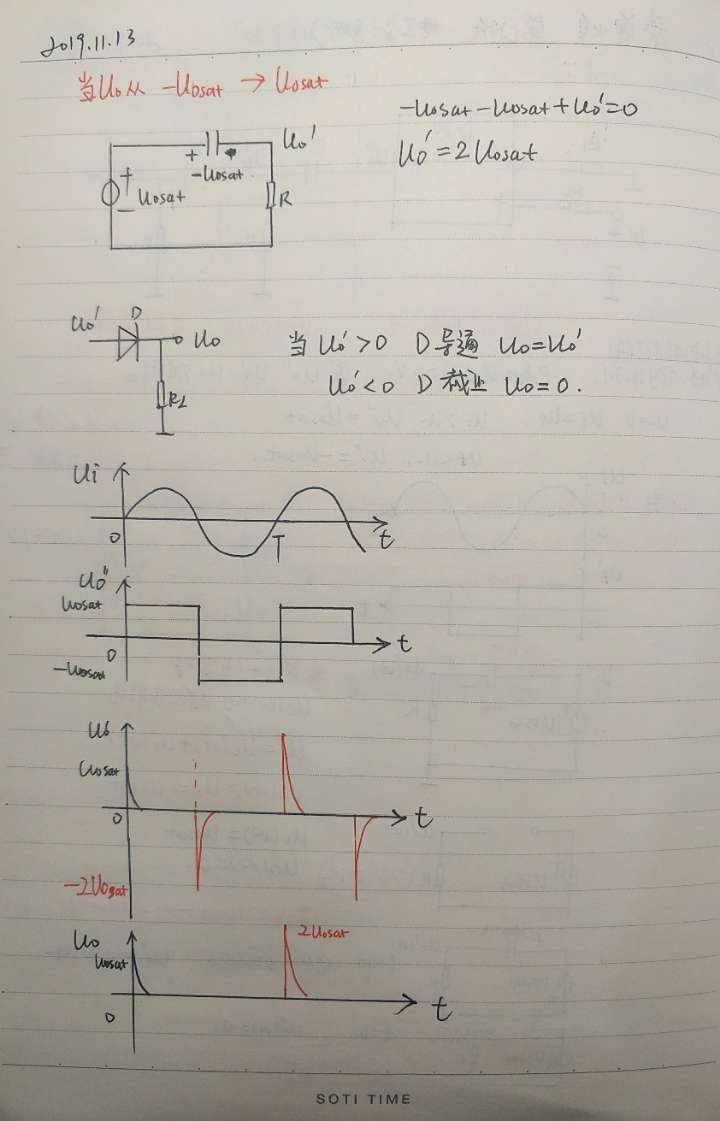 2019.11.13
当Uo从 -Uosat → Uosat
-Uosat-Uosat+Uo'=0
Uo'=2Uosat
Uo'
+ -Uosat
+
Uosat
-
R
Uo' D Uo
RL
当 Uo'>0 D导通 Uo=Uo'
Uo'<0 D截止 Uo=0.
Ui
0 T t
Uo"
Uosat
0 t
-Uosat
Uo'
Uosat
0 t
-2Uosat
Uo 2Uosat
Uosat
0 t
SOTI TIME